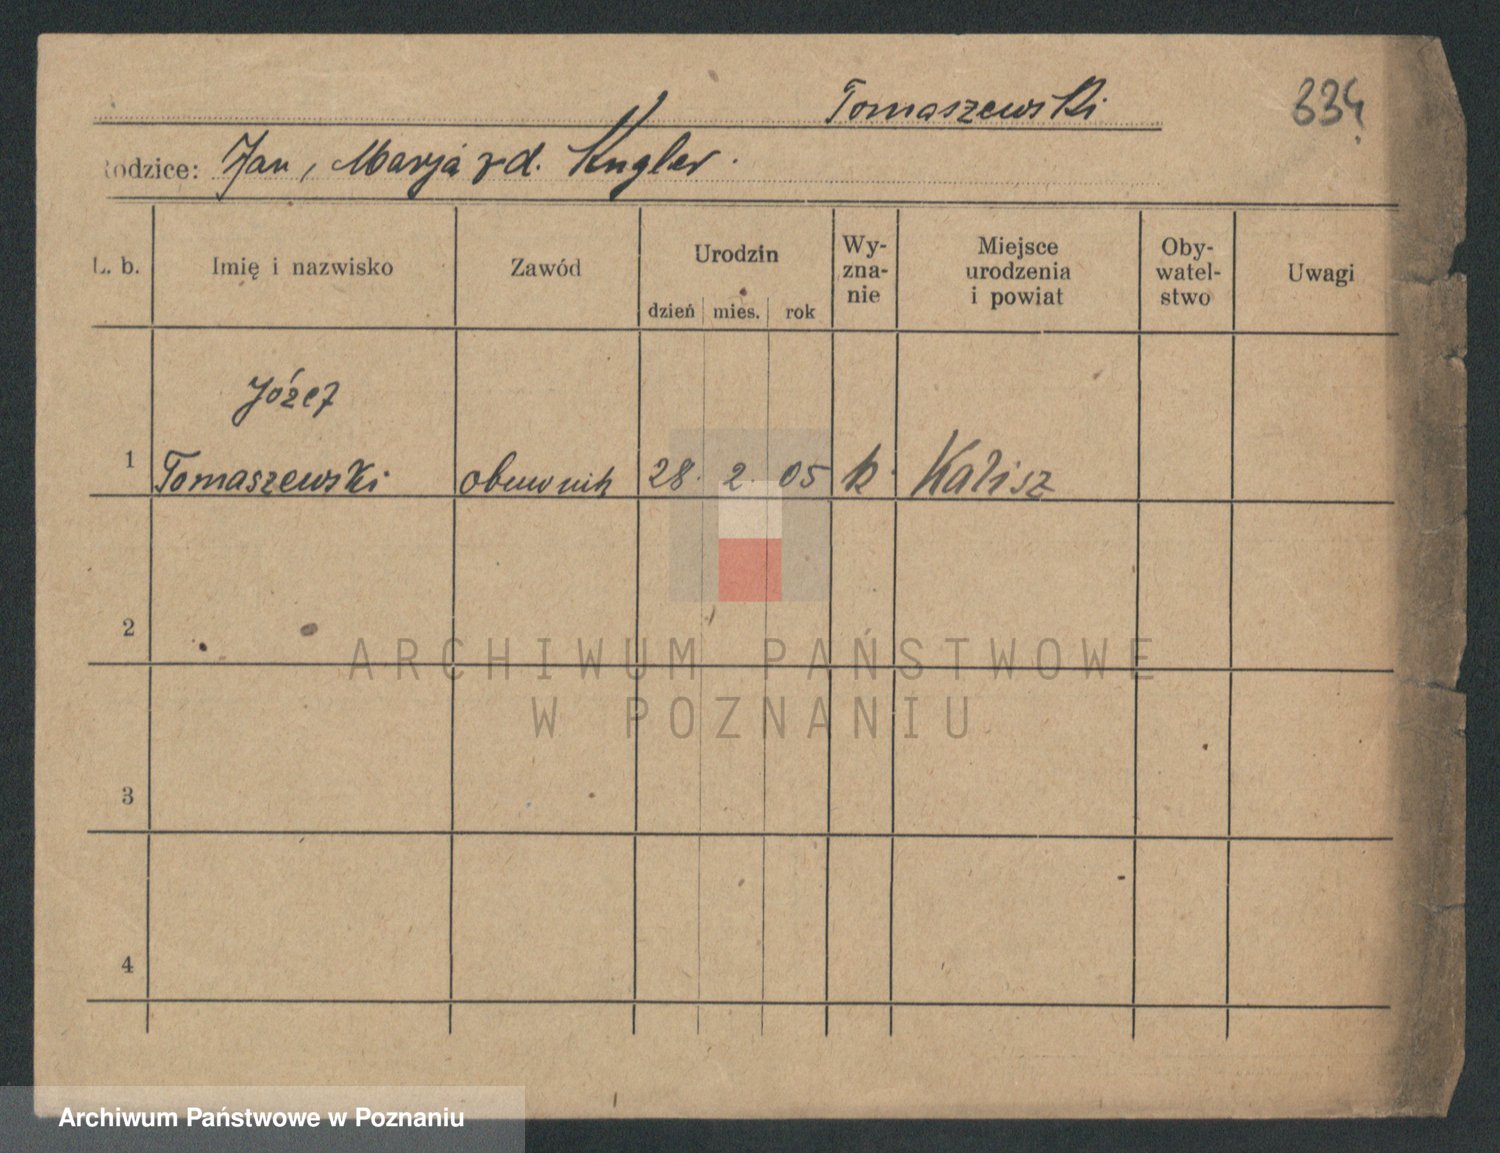 Tomaszewski
334
Rodzice: Jan, Marja z d. Kugler.
L. b.
Imię i nazwisko
Zawód
Urodzin
dzień
mies.
rok
Wy-
zna-
nie
Miejsce
urodzenia
i powiat
Oby-
watel-
stwo
Uwagi
Józef
1 Tomaszewski obuwnik 28. 2. 05 k. Kalisz
2
ARCHIWUM PAŃSTWOWE
W POZNANIU
3
4
Archiwum Państwowe w Poznaniu